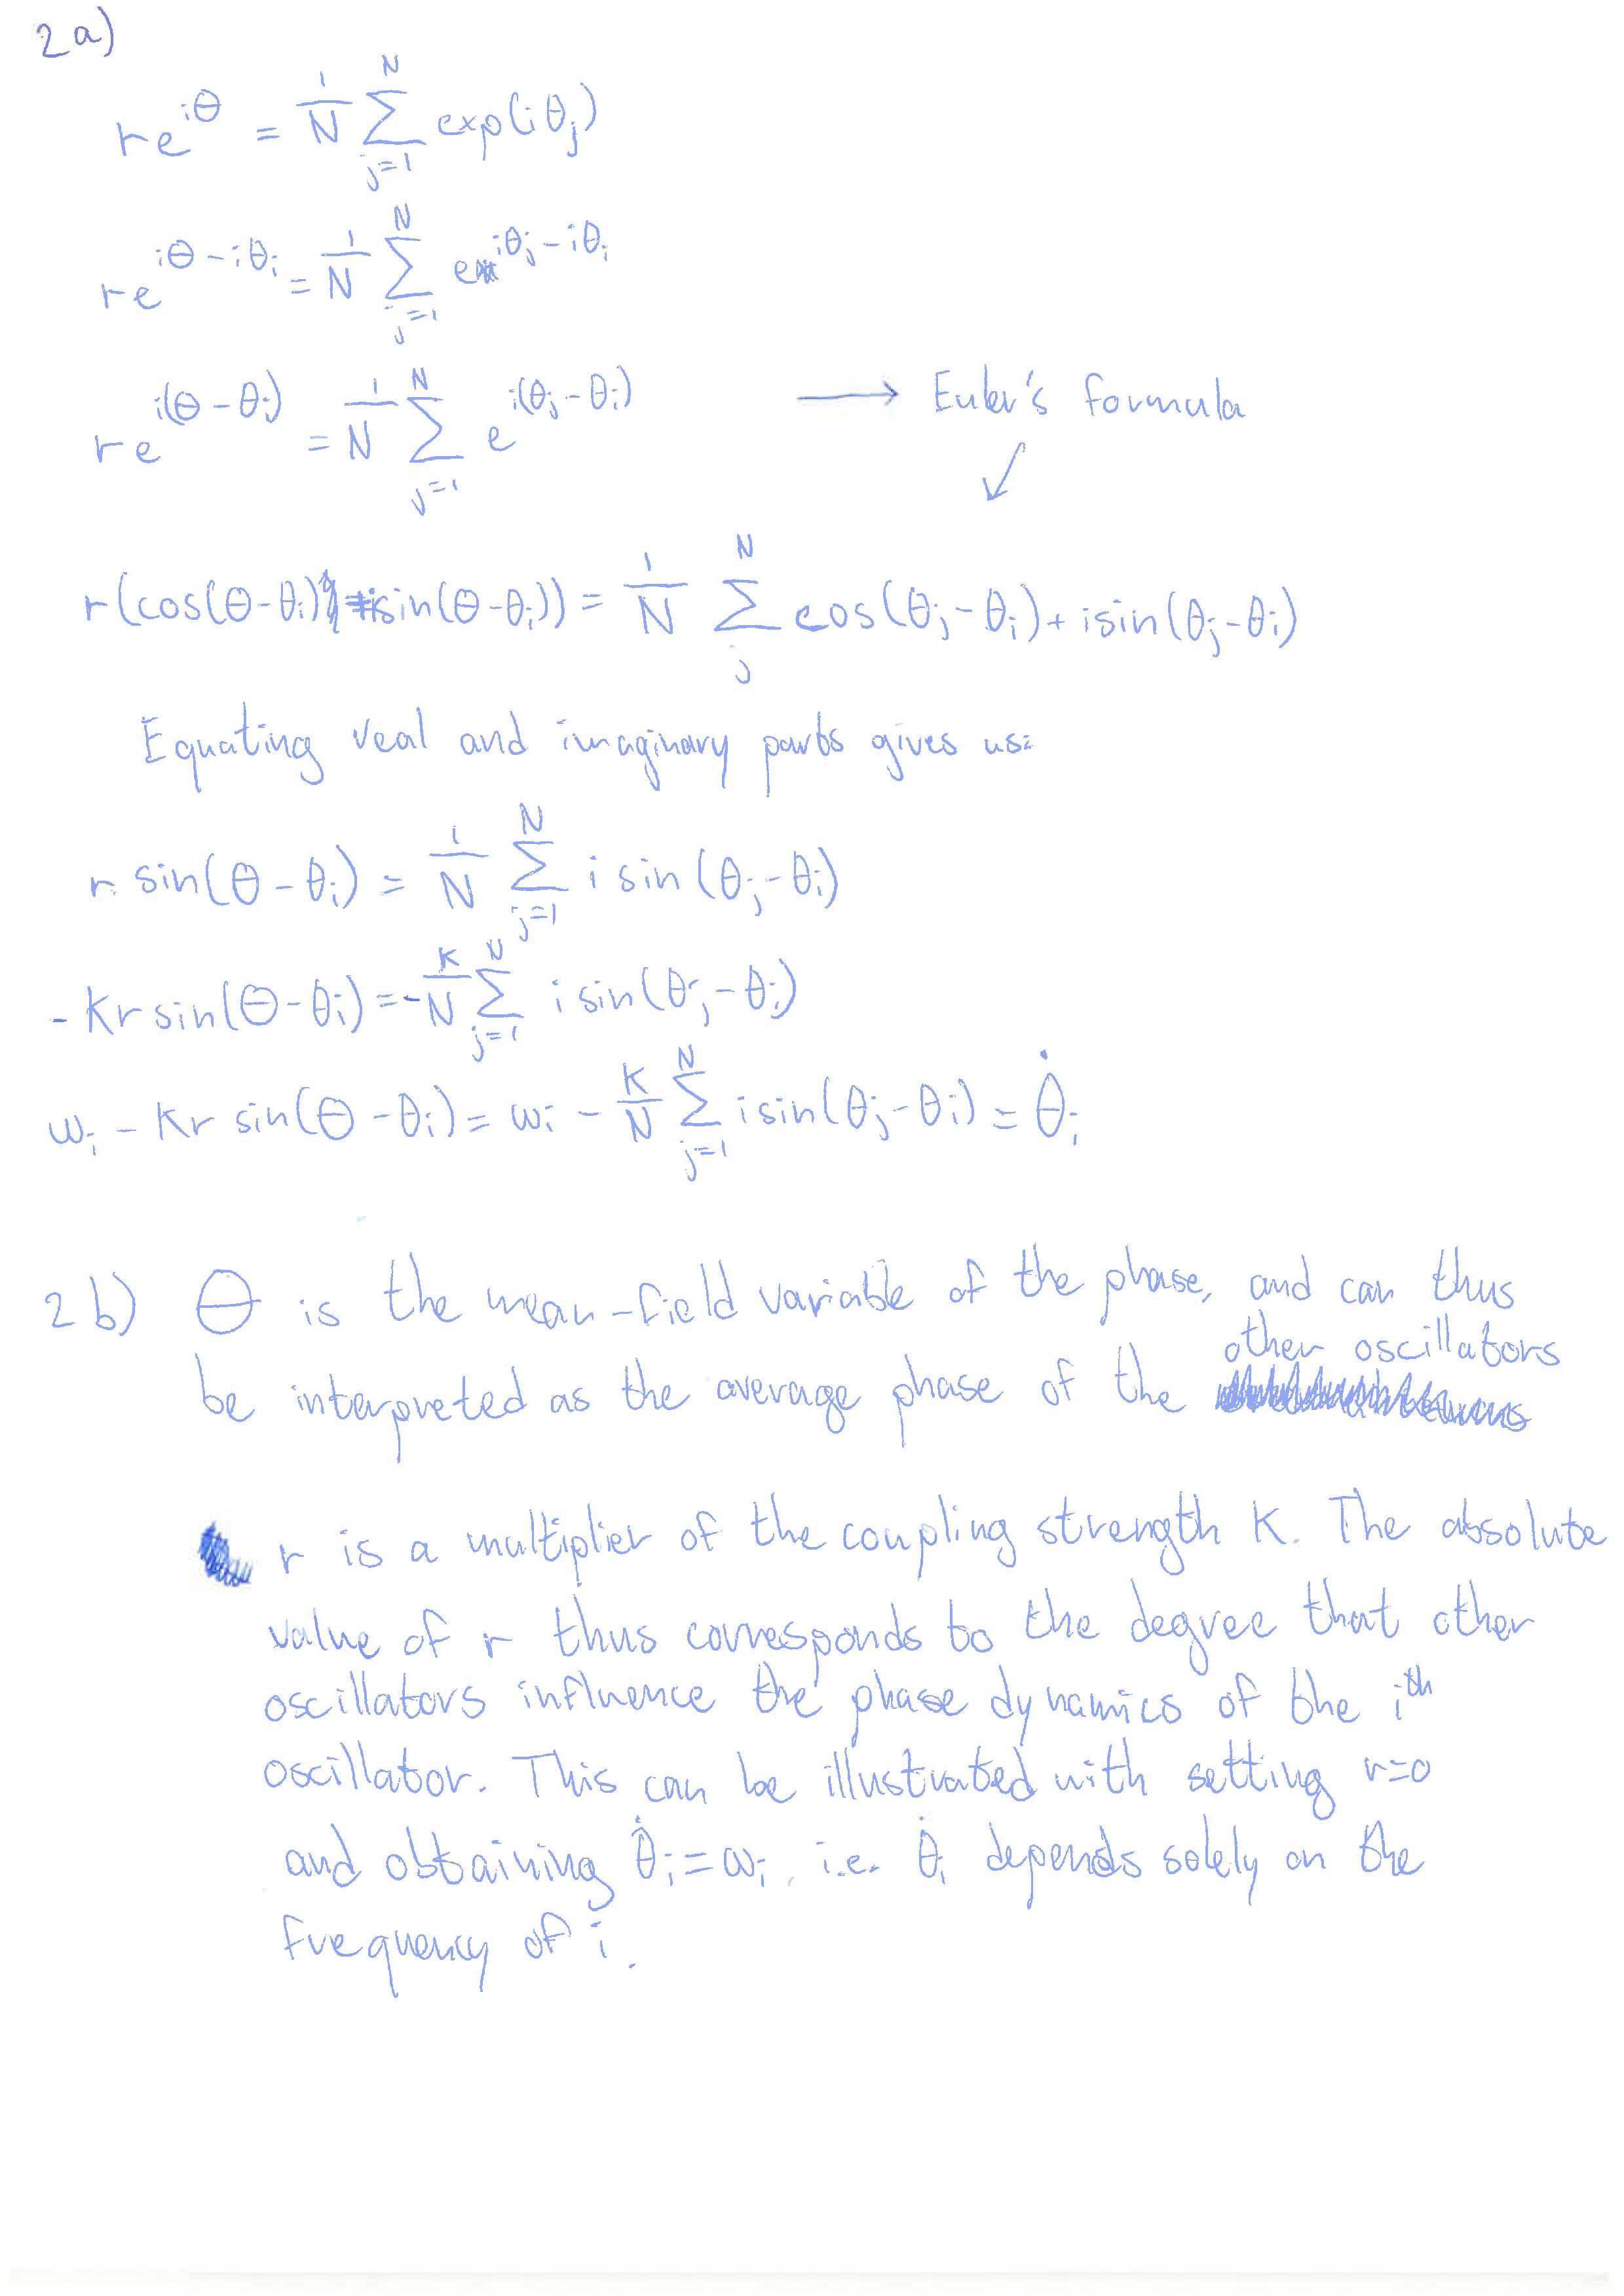 2a)
re^{iΘ} = 1/N ∑_{j=1}^{N} exp(iθ_j)
re^{iΘ-iθ_i} = 1/N ∑_{j=1}^{N} e^{iθ_j-iθ_i}
re^{i(Θ-θ_i)} = 1/N ∑_{j=1}^{N} e^{i(θ_j-θ_i)} → Euler's formula
↙
r(cos(Θ-θ_i)+isin(Θ-θ_i)) = 1/N ∑_{j}^{N} cos(θ_j-θ_i)+isin(θ_j-θ_i)
Equating real and imaginary parts gives us:
r sin(Θ-θ_i) = 1/N ∑_{j=1}^{N} i sin(θ_j-θ_i)
-Kr sin(Θ-θ_i) = -K/N ∑_{j=1}^{N} i sin(θ_j-θ_i)
w_i - Kr sin(Θ-θ_i) = w_i - K/N ∑_{j=1}^{N} i sin(θ_j-θ_i) = θ̇_i
2b) Θ is the mean-field variable of the phase, and can thus
be interpreted as the average phase of the other oscillators
r is a multiplier of the coupling strength K. The absolute
value of r thus corresponds to the degree that other
oscillators influence the phase dynamics of the i^{th}
oscillator. This can be illustrated with setting r=0
and obtaining θ̇_i = ω_i, i.e. θ̇_i depends solely on the
frequency of i.